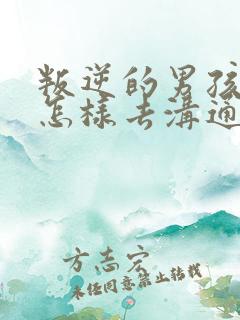 叛逆的男孩
怎樣去溝通
方志宏
未经同意禁止转载